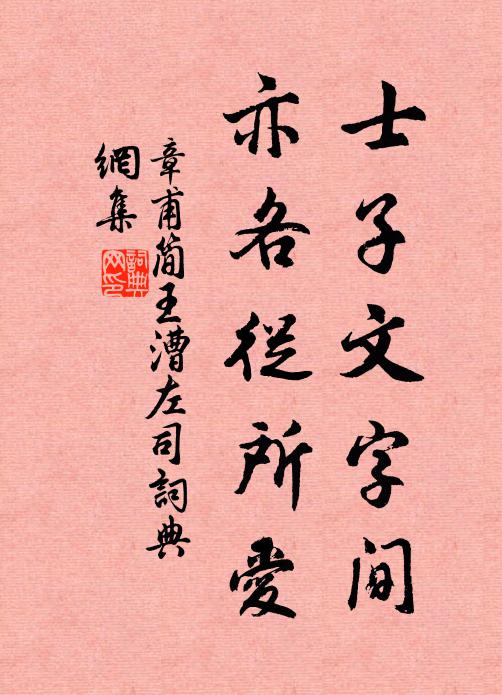 士子文字间
亦各從所愛
章甫简王漕左司詞典
網集
詞典
网印